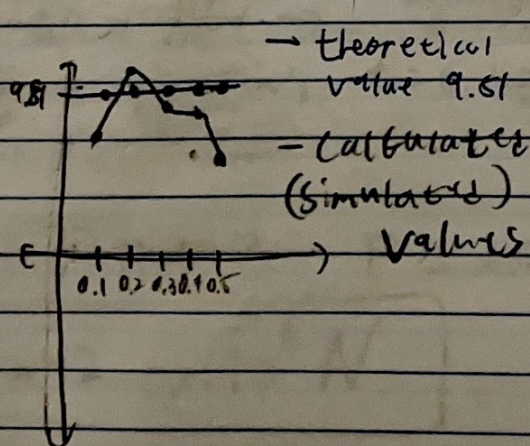 → theoretical
value 9.81
9.81
- Calculated
(simulated)
values
0.1 0.2 0.3 0.4 0.5